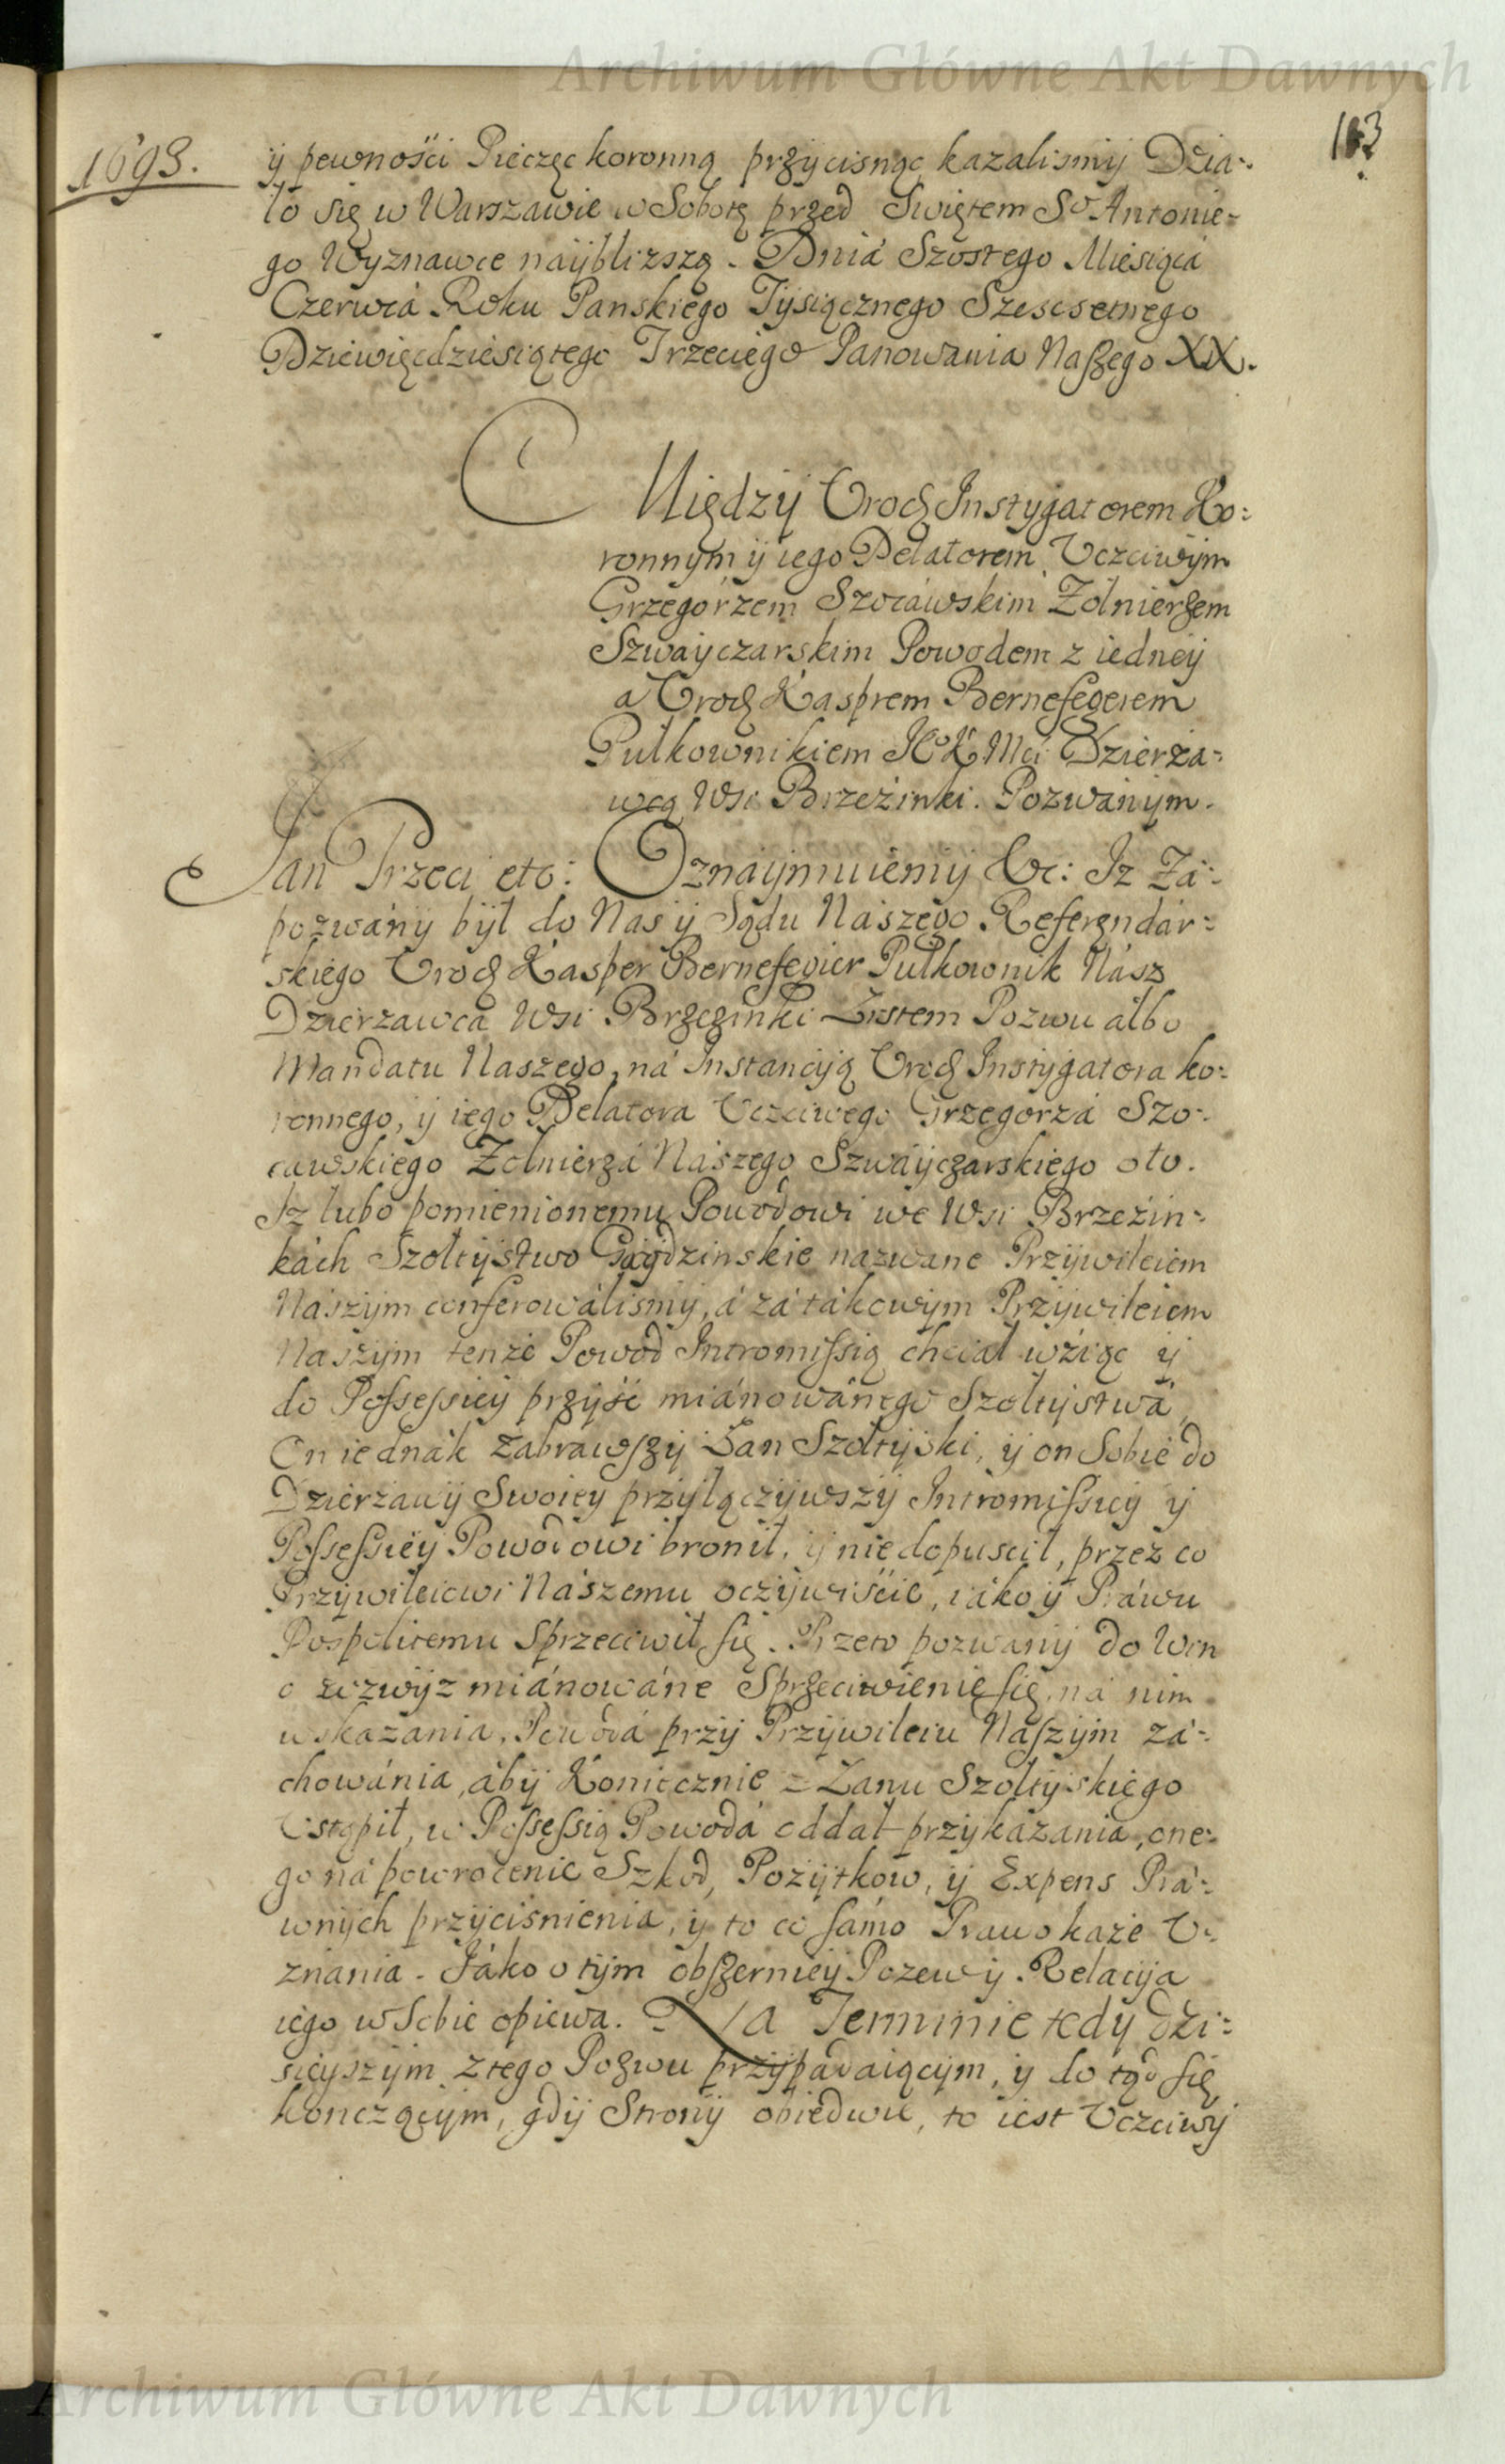 Archiwum Główne Akt Dawnych
1693.
163
ÿ pewnośći Pieczęc koronną przycisnąc kazalismÿ Dzia-
ło się w Warszawie w Sobotę przed Swiętem Sº Antonie-
go Wyznawce naÿblizszą. Dniá Szostego Miesiącá
Czerwcá Roku Panskiego Tÿsiącznego Szescsetnego
Dziewięcdziesiątego Trzeciego Panowania Naszego XX.
Międzÿ Urodz Instÿgatorem Ko-
ronnym ÿ iego Delatorem Uczciwÿm
Grzegorzem Szocáwskim Żołnierzem
Szwaÿczarskim Powodem z iedneÿ
a Urodz Kasprem Bernefegerem
Pułkownikiem JKº Mći Dzierża-
wcą Wsi Brzeżinki. Pozwánÿm.
Jan Trzeci etc: Oznaÿmuiemÿ &c: Iz Zá-
pozwánÿ bÿł do Nas ÿ Sądu Nászego Referendár-
skiego Urodz Kásper Bernefegier Pułkownik Nász
Dzierzawcá Wsi Brzezinki Listem Pozwu álbo
Mandatu Naszego, ná Instancÿą Urodz Instÿgatora ko-
ronnego, ÿ iego Delatora Uczciwego Grzegorzá Szo-
cawskiego Zołnierzá Nászego Szwáÿczarskiego oto.
Iz lubo pomienionemu Powodowi we Wsi Brzeżin-
kách Szołtÿstwo nazwane Przÿwileiem
Nászÿm conferowálismÿ, á zá tákowÿm Przÿwileiem
Nászÿm tenże Powod Intromissią chciał wżiąc ÿ
do Possessieÿ przÿść miánowánego Szołtÿstwá
On iednák zabrawszÿ Łan Szołtÿski, ÿ on Sobie do
Dzierżawÿ Swoieÿ przÿłączÿwszÿ Intromissieÿ ÿ
Possessieÿ Powodowi bronił, ÿ niedopuscił, przez co
Przÿwileiowi Nászemu oczÿwiście, iáko ÿ Práwu
Pospolitemu sprzeciwił się. Przeto pozwanÿ do Win
o zwÿz miánowáne Sprzeciwienie się, ná nim
wskazania, Powodá przÿ Przÿwileiu Naszÿm zá-
chowánia, ábÿ Koniecznie z Łanu Szołtÿskiego
Ustąpił, w Possessią Powodá oddał przÿkázania, one-
go ná powrocenie Szkod, Pożÿtkow, ÿ Expens Prá-
wnÿch przÿcisnienia, ÿ to co sámo Prawo każe U-
znánia. Jáko o tÿm obszernieÿ Pozew ÿ Relacÿa
iego w Sobie opiewa. Na Terminie tedÿ dżi-
sieÿszÿm z tego Pozwu przÿpadaiącÿm, ÿ do tąd się
kończącÿm, gdÿ Stronÿ obiedwie, to iest Uczciwÿ
Archiwum Główne Akt Dawnych